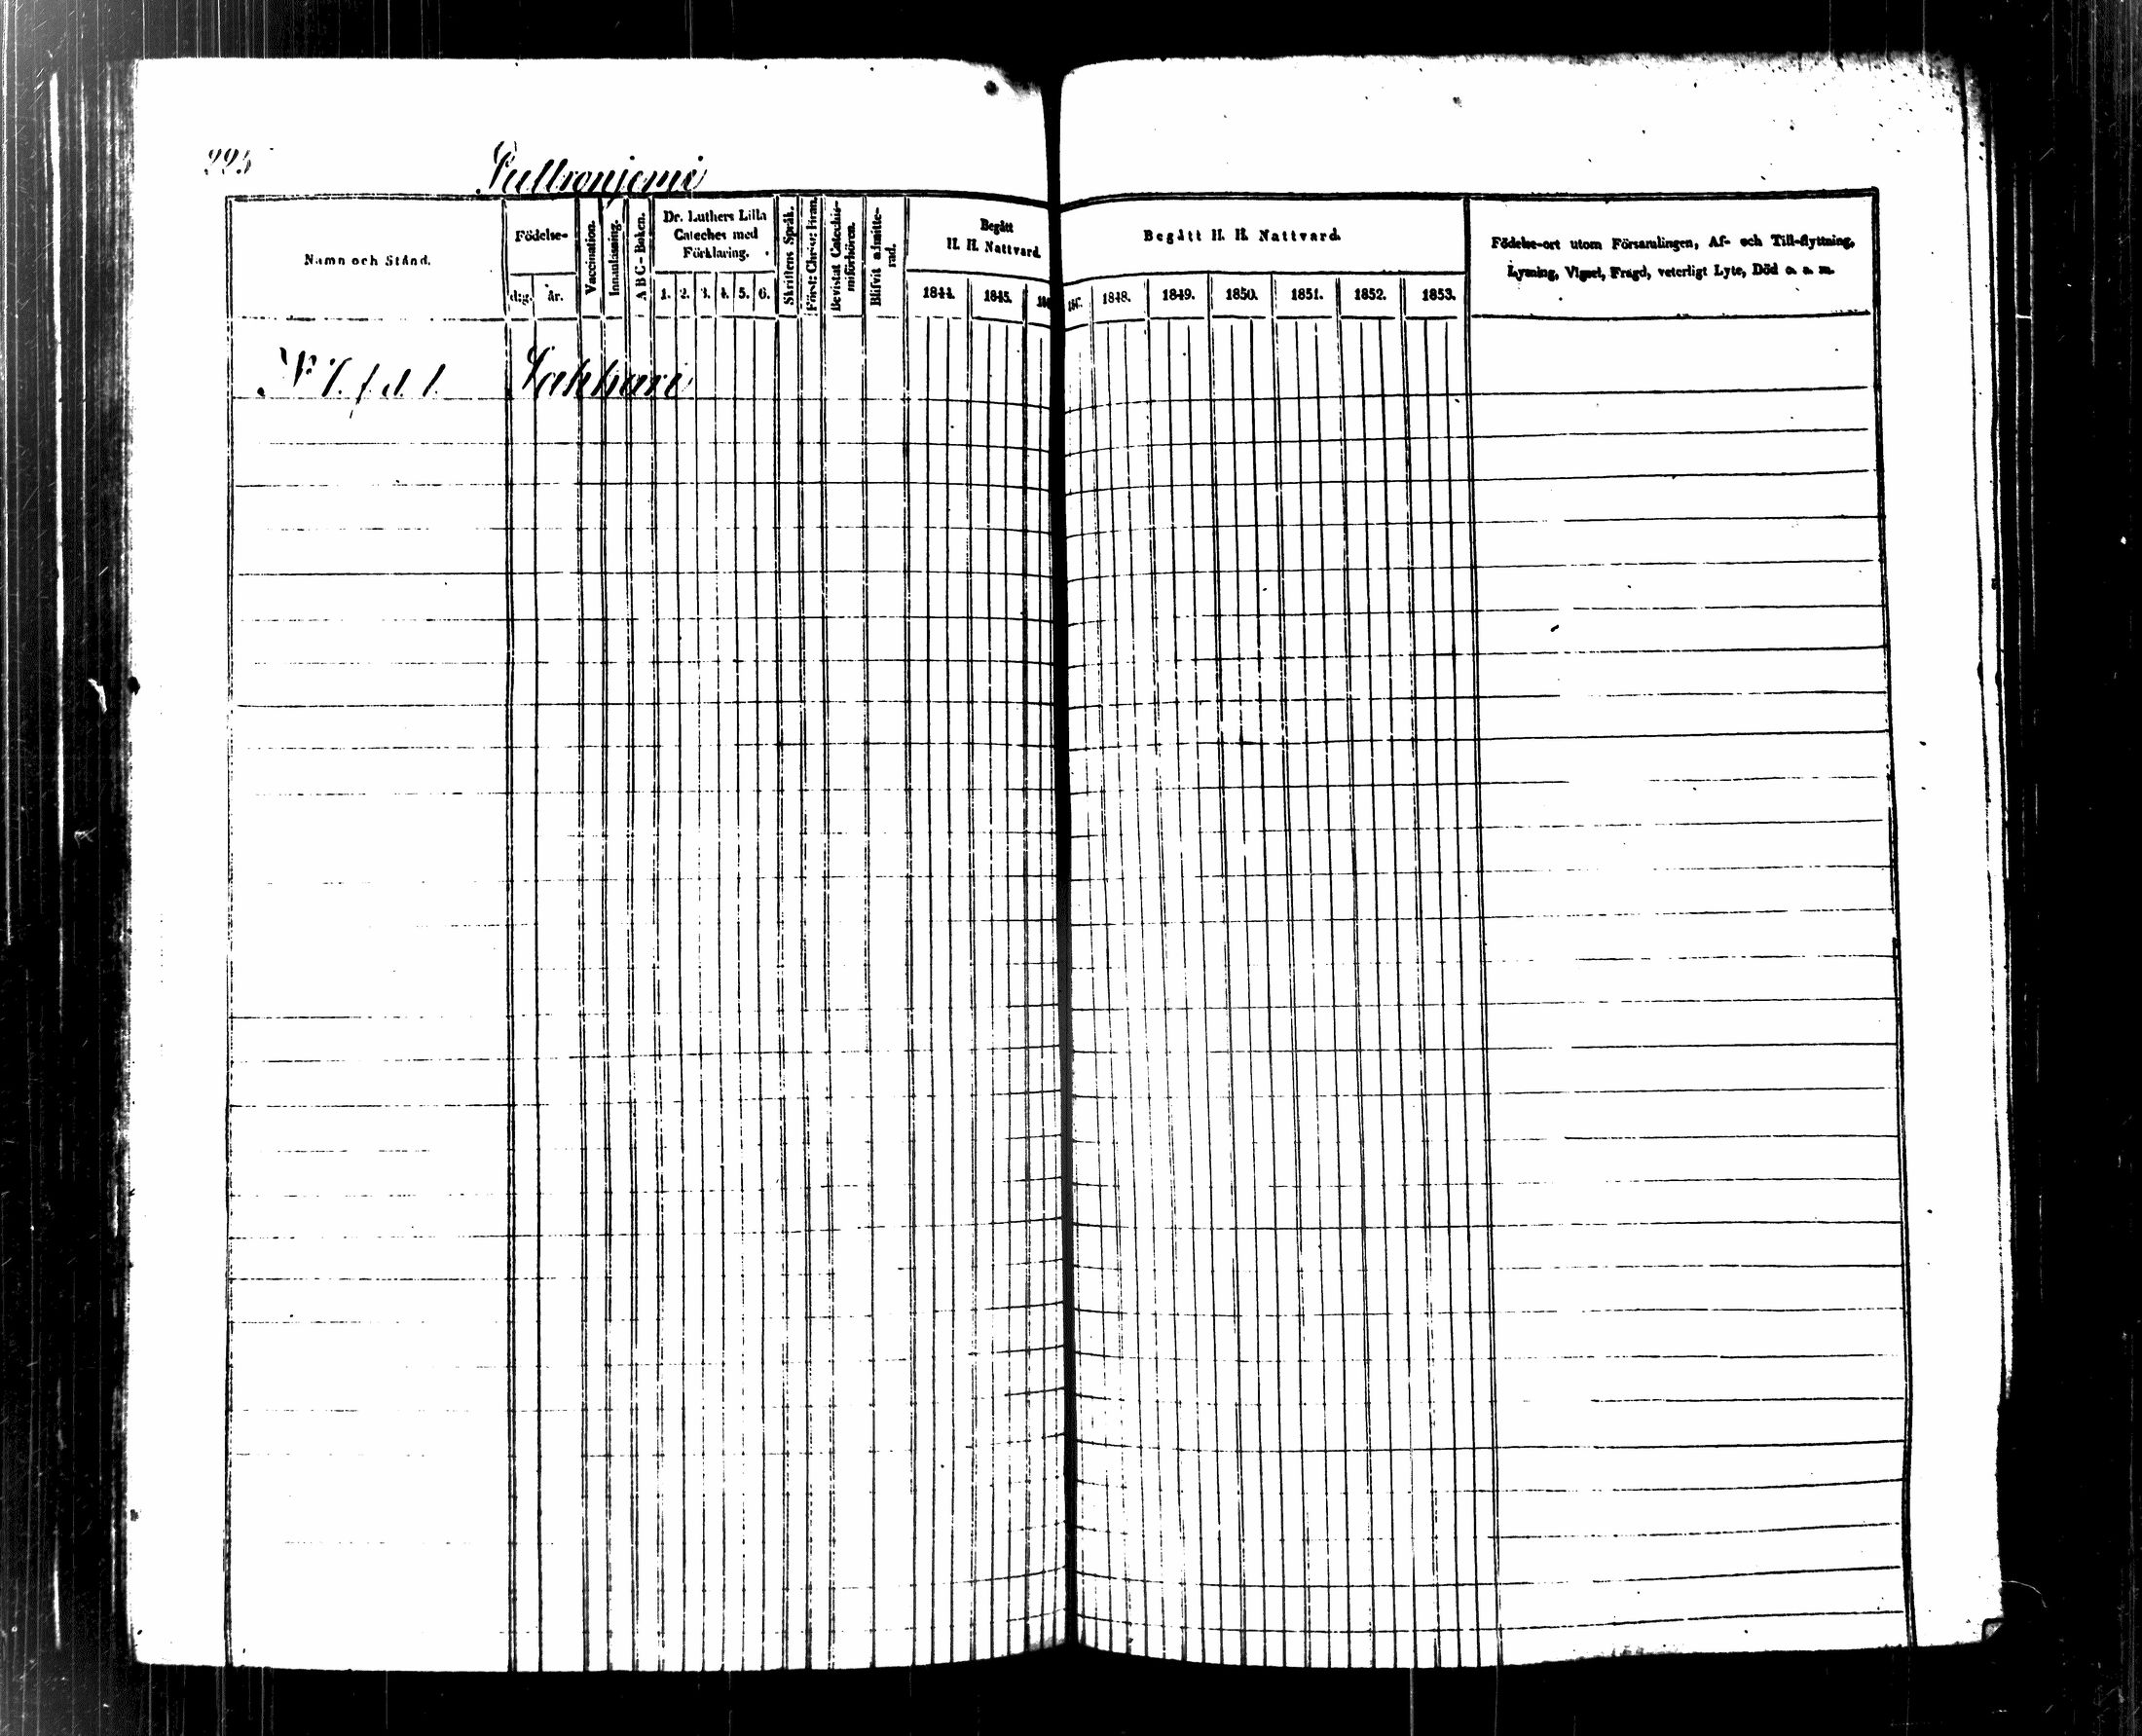 225
Pultronjemi
Namn och Stånd.
Födelse-
dag. år.
Vaccination.
Innanläsning.
A B C-Boken.
Dr. Luthers Lilla
Cateches med
Förklaring.
1. 2. 3. 4. 5. 6.
Skriftens Språk.
Bevistat Catechis-
miförhören.
Blifvit admitte-
rad.
Begått
H. H. Nattvard
1844. 1845.
Begått H. H. Nattvard.
1848. 1849. 1850. 1851. 1852. 1853.
Födelse-ort utom Församlingen, Af- och Till-flyttning,
Lysning, Vigsel, Frägd, veterligt Lyte, Död o. s. m.